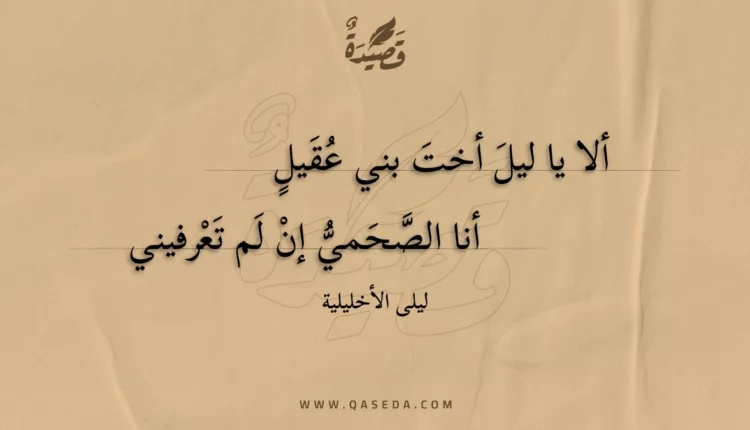 قَصِيْدَةٌ
ألا يا ليلَ أختَ بني عُقَيلٍ
أنا الصَّحَميُّ إنْ لَم تَعْرفيني
ليلى الأخليلية
WWW.QASEDA.COM